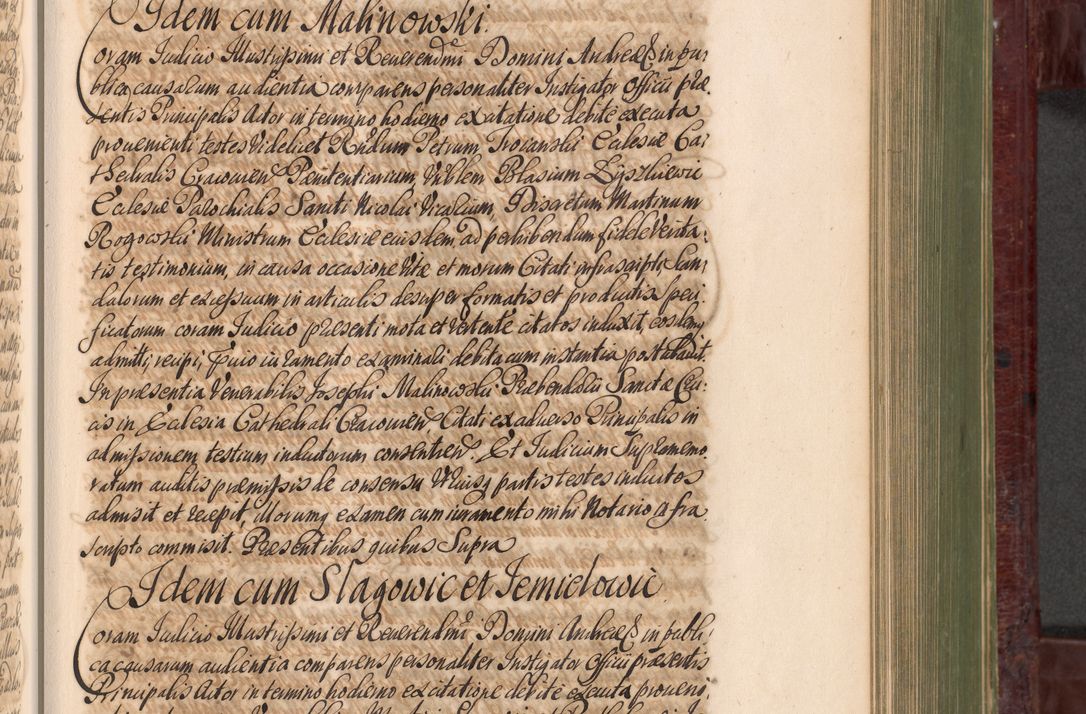 Idem cum Malinowski.
Coram Iudicio Illustrissimi et Reverendmi Domini Andreæ & in pu-
blica causarum audientia comparens personaliter Instigator Officii præ-
sentis Principalis Actor in termino hodierno ex citatione debite executa
provenienti testes videlicet Rndum Petrum Trocanski Ecclesiæ Cat-
thedralis Cracovien Pænitentiarium, Vnblem Blasium Ligszkiewic
Ecclesiæ Parochialis Sancti Nicolai Vicarium, Discretum Martinum
Rogowski Ministrum Ecclesiæ eiusdem, ad perhibendum fidele verita-
tis testimonium, in causa occasione Vitæ et morum Citati infrascripti Scan-
dalorum et excessuum in articulis desuper formatis et productis speci-
ficatorum coram Iudicio præsenti mota et vertente citatos induxit, eosdemq
admitti, recipi, suio iuramento examinari debita cum instantia postulavit.
In præsentia Venerabilis Josephi Malinowski Præbendarii Sanctæ Cru-
cis in Ecclesia Cathedrali Cracovien Citati ex adverso Principalis in
admissionem testium inductorum consentien. Et Iudicium Supramemo-
ratum auditis præmissis de consensu utriusq partis testes inductos
admisit et recepit, illorumq examen cum iuramento mihi Notario infra-
scripto commisit. Præsentibus quibus Supra
Idem cum Slagowic et Jemielowic
Coram Iudicio Illustrissimi et Reverendmi Domini Andreæ & in publi-
ca causarum audientia comparens personaliter Instigator Officii præsentis
Principalis Actor in termino hodierno ex citatione debite executa proveni-